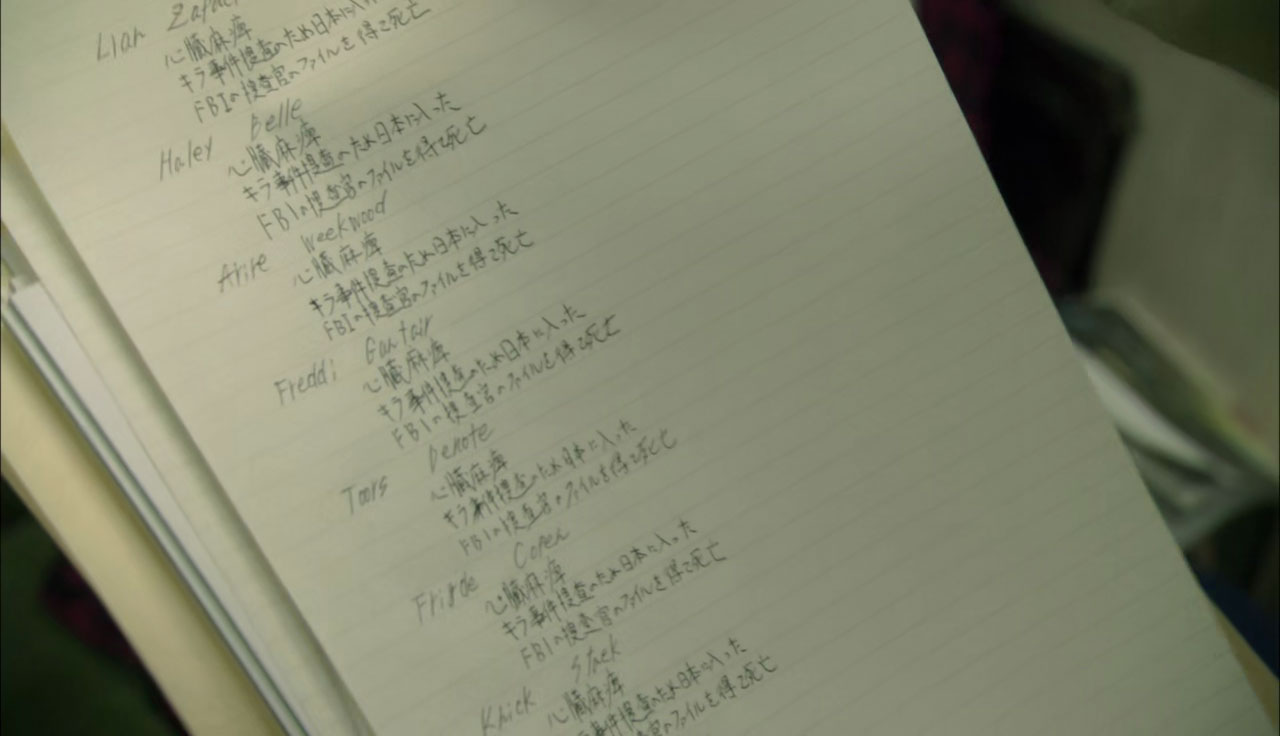 Lian
心臓麻痺
キラ事件捜査のため日本に入った
FBIの捜査官のファイルを得て死亡
Haley Belle
心臓麻痺
キラ事件捜査のため日本に入った
FBIの捜査官のファイルを得て死亡
Arire Weekwood
心臓麻痺
キラ事件捜査のため日本に入った
FBIの捜査官のファイルを得て死亡
Freddi Guntair
心臓麻痺
キラ事件捜査のため日本に入った
FBIの捜査官のファイルを得て死亡
Toors Denote
心臓麻痺
キラ事件捜査のため日本に入った
FBIの捜査官のファイルを得て死亡
Frigde Copen
心臓麻痺
キラ事件捜査のため日本に入った
FBIの捜査官のファイルを得て死亡
Knick Staek
心臓麻痺
事件捜査のため日本に入った
捜査官のファイルを得て死亡